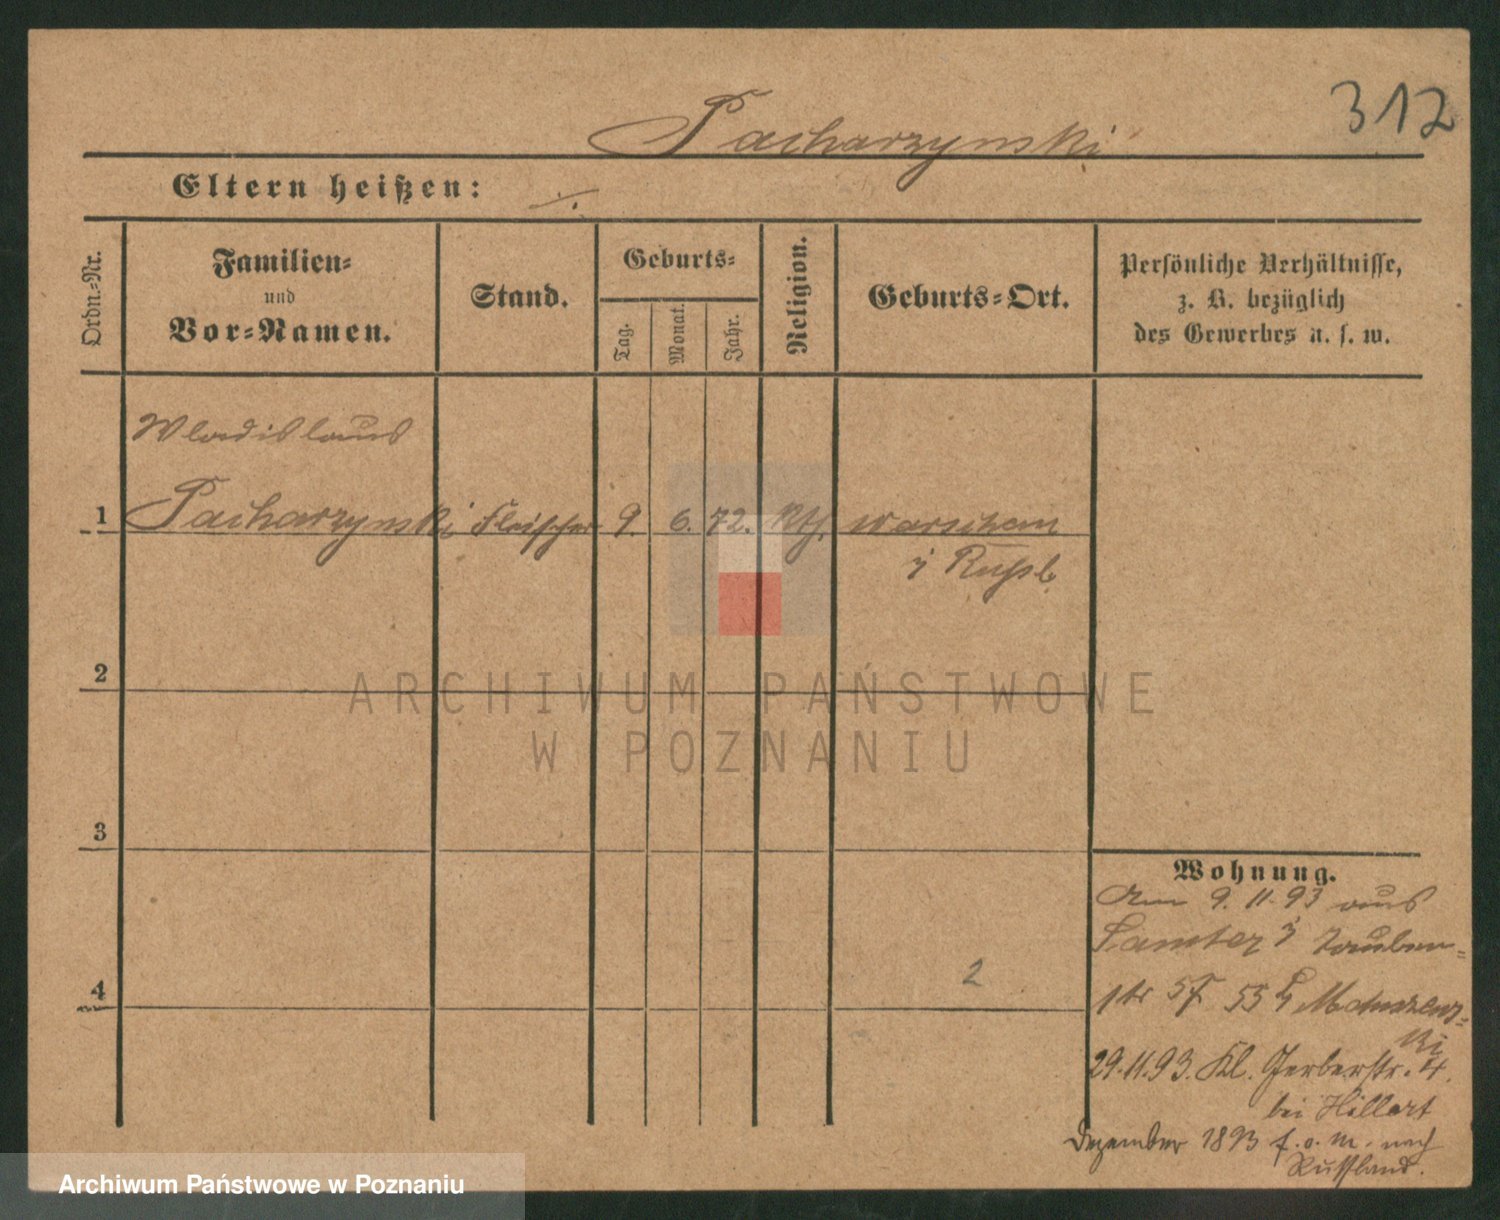 312
Pacharzynski
Eltern heißen: ./.
Ordn.-Nr.
Familien-
und
Vor-Namen.
Stand.
Geburts-
Tag.
Monat.
Jahr.
Religion.
Geburts-Ort.
Persönliche Verhältnisse,
z. B. bezüglich
des Gewerbes u. s. w.
Wladislaus
1 Pacharzynski Fleischer 9. 6. 72. Kth. Warschau
i Rußl.
2
3
4
2
Wohnung.
Am 9.11.93 aus
Samter i Tauben-
29.11.93. Kl. Gerberstr. 4.
bei Hillert
Dezember 1893 f. o. M. nach
Russland.
ARCHIWUM PAŃSTWOWE
W POZNANIU
Archiwum Państwowe w Poznaniu